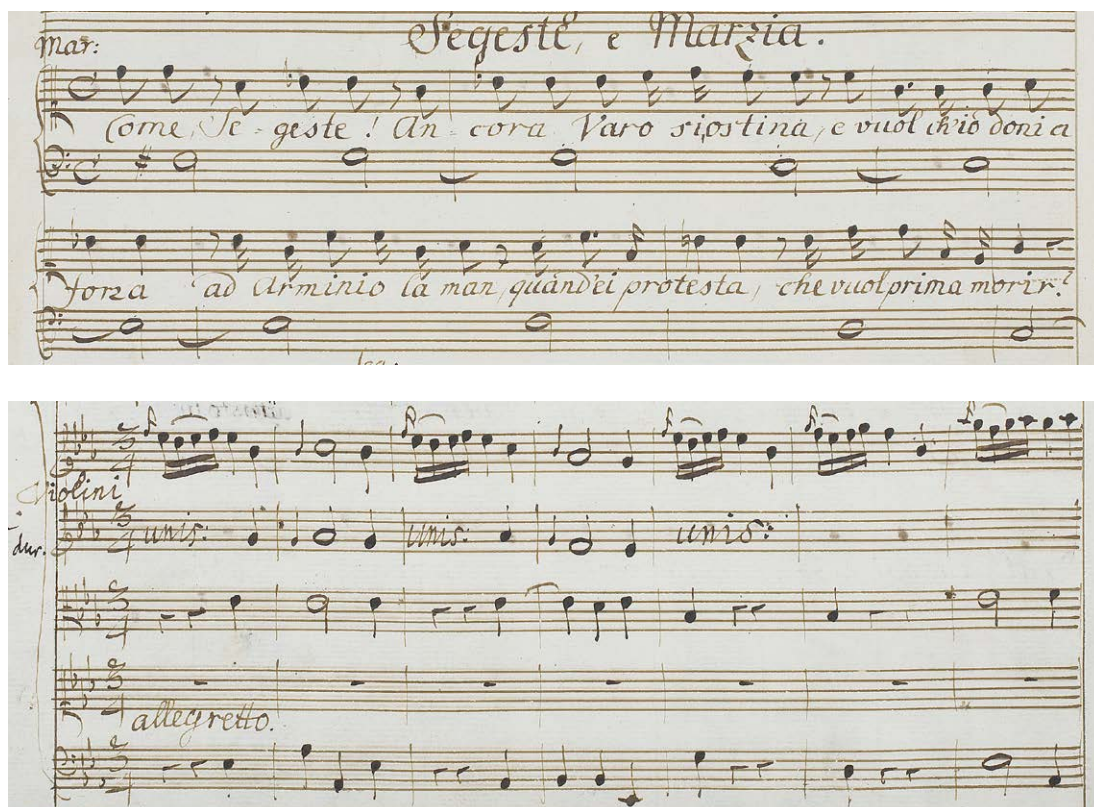 Segeste, e Marzia.
Mar:
Come, Se-geste! An-cora Varo s'ostina, e vuol ch'io doni a
forza ad Arminio la man, quand'ei protesta, che vuol prima morir?
Violini
unis: unis: unis:
dur.
allegretto.